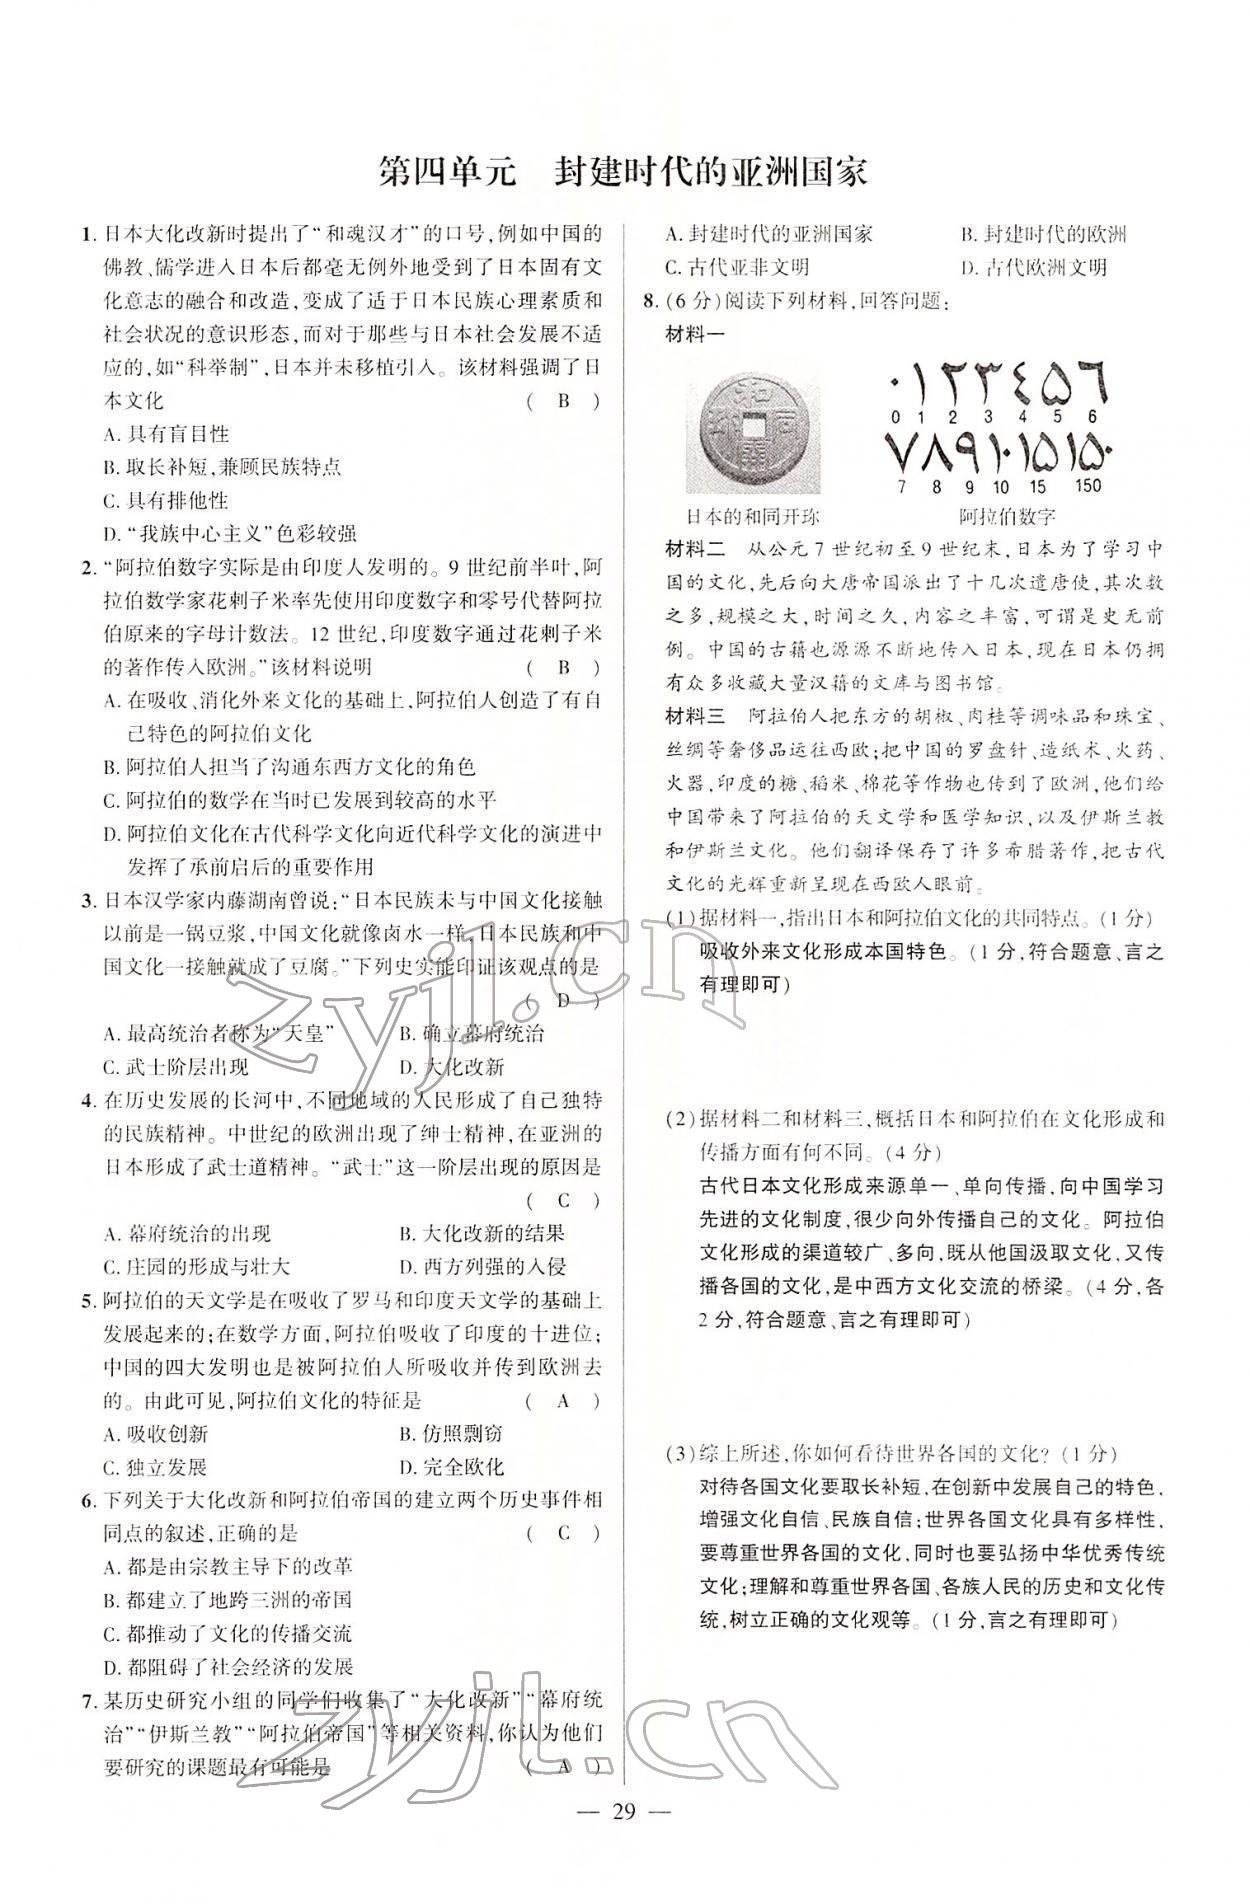 第四单元　封建时代的亚洲国家
1. 日本大化改新时提出了“和魂汉才”的口号,例如中国的
佛教、儒学进入日本后都毫无例外地受到了日本固有文
化意志的融合和改造,变成了适于日本民族心理素质和
社会状况的意识形态,而对于那些与日本社会发展不适
应的,如“科举制”,日本并未移植引入。该材料强调了日
本文化 ( B )
A. 具有盲目性
B. 取长补短,兼顾民族特点
C. 具有排他性
D. “我族中心主义”色彩较强
2. “阿拉伯数字实际是由印度人发明的。9 世纪前半叶,阿
拉伯数学家花剌子米率先使用印度数字和零号代替阿拉
伯原来的字母计数法。12 世纪,印度数字通过花剌子米
的著作传入欧洲。”该材料说明 ( B )
A. 在吸收、消化外来文化的基础上,阿拉伯人创造了有自
己特色的阿拉伯文化
B. 阿拉伯人担当了沟通东西方文化的角色
C. 阿拉伯的数学在当时已发展到较高的水平
D. 阿拉伯文化在古代科学文化向近代科学文化的演进中
发挥了承前启后的重要作用
3. 日本汉学家内藤湖南曾说:“日本民族未与中国文化接触
以前是一锅豆浆,中国文化就像卤水一样,日本民族和中
国文化一接触就成了豆腐。”下列史实能印证该观点的是
( D )
A. 最高统治者称为“天皇” B. 确立幕府统治
C. 武士阶层出现 D. 大化改新
4. 在历史发展的长河中,不同地域的人民形成了自己独特
的民族精神。中世纪的欧洲出现了绅士精神,在亚洲的
日本形成了武士道精神。“武士”这一阶层出现的原因是
( C )
A. 幕府统治的出现 B. 大化改新的结果
C. 庄园的形成与壮大 D. 西方列强的入侵
5. 阿拉伯的天文学是在吸收了罗马和印度天文学的基础上
发展起来的;在数学方面,阿拉伯吸收了印度的十进位;
中国的四大发明也是被阿拉伯人所吸收并传到欧洲去
的。由此可见,阿拉伯文化的特征是 ( A )
A. 吸收创新 B. 仿照剽窃
C. 独立发展 D. 完全欧化
6. 下列关于大化改新和阿拉伯帝国的建立两个历史事件相
同点的叙述,正确的是 ( C )
A. 都是由宗教主导下的改革
B. 都建立了地跨三洲的帝国
C. 都推动了文化的传播交流
D. 都阻碍了社会经济的发展
7. 某历史研究小组的同学们收集了“大化改新”“幕府统
治”“伊斯兰教”“阿拉伯帝国”等相关资料,你认为他们
要研究的课题最有可能是 ( A )
A. 封建时代的亚洲国家 B. 封建时代的欧洲
C. 古代亚非文明 D. 古代欧洲文明
8. (6 分)阅读下列材料,回答问题:
材料一
٠ ١ ٢ ٣ ٤ ٥ ٦
0 1 2 3 4 5 6
٧ ٨ ٩ ١٠ ١٥ ١٥٠
7 8 9 10 15 150
日本的和同开珎 阿拉伯数字
材料二　从公元 7 世纪初至 9 世纪末,日本为了学习中
国的文化,先后向大唐帝国派出了十几次遣唐使,其次数
之多,规模之大,时间之久,内容之丰富,可谓是史无前
例。中国的古籍也源源不断地传入日本,现在日本仍拥
有众多收藏大量汉籍的文库与图书馆。
材料三　阿拉伯人把东方的胡椒、肉桂等调味品和珠宝、
丝绸等奢侈品运往西欧;把中国的罗盘针、造纸术、火药、
火器,印度的糖、稻米、棉花等作物也传到了欧洲,他们给
中国带来了阿拉伯的天文学和医学知识,以及伊斯兰教
和伊斯兰文化。他们翻译保存了许多希腊著作,把古代
文化的光辉重新呈现在西欧人眼前。
(1)据材料一,指出日本和阿拉伯文化的共同特点。(1 分)
吸收外来文化形成本国特色。(1 分,符合题意、言之
有理即可)
(2)据材料二和材料三,概括日本和阿拉伯在文化形成和
传播方面有何不同。(4 分)
古代日本文化形成来源单一、单向传播,向中国学习
先进的文化制度,很少向外传播自己的文化。阿拉伯
文化形成的渠道较广、多向,既从他国汲取文化,又传
播各国的文化,是中西方文化交流的桥梁。(4 分,各
2 分,符合题意、言之有理即可)
(3)综上所述,你如何看待世界各国的文化? (1 分)
对待各国文化要取长补短,在创新中发展自己的特色,
增强文化自信、民族自信;世界各国文化具有多样性,
要尊重世界各国的文化,同时也要弘扬中华优秀传统
文化;理解和尊重世界各国、各族人民的历史和文化传
统,树立正确的文化观等。(1 分,言之有理即可)
— 29 —
zyjl.cn
zyjl.cn